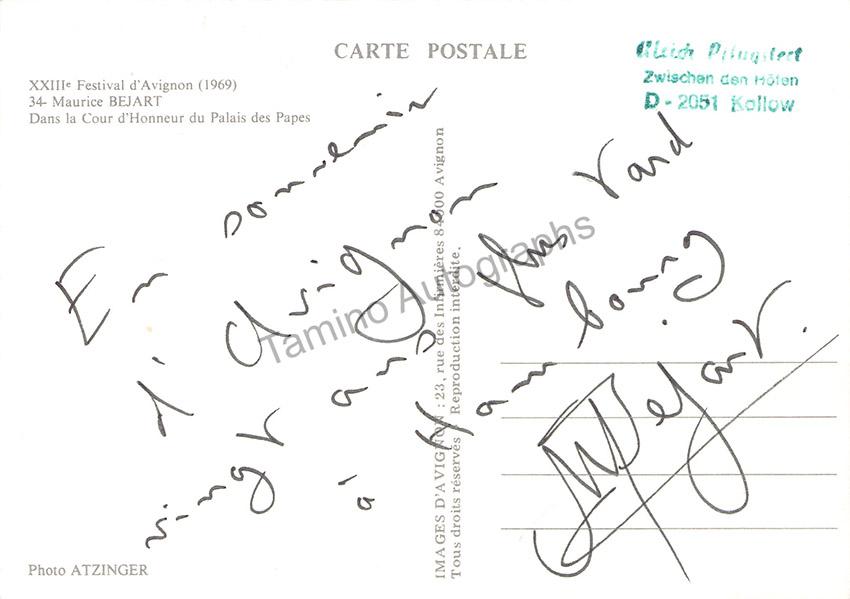 CARTE POSTALE
XXIIIᵉ Festival d'Avignon (1969)
34- Maurice BEJART
Dans la Cour d'Honneur du Palais des Papes
Zwischen den Höfen
D - 2051 Kollow
En souvenir
d'Avignon
vingt ans plus tard
à Hambourg
MBejart.
IMAGES D'AVIGNON : 23, rue des Infirmières 84000 Avignon
Tous droits réservés Reproduction interdite.
Photo ATZINGER
Tamino Autographs